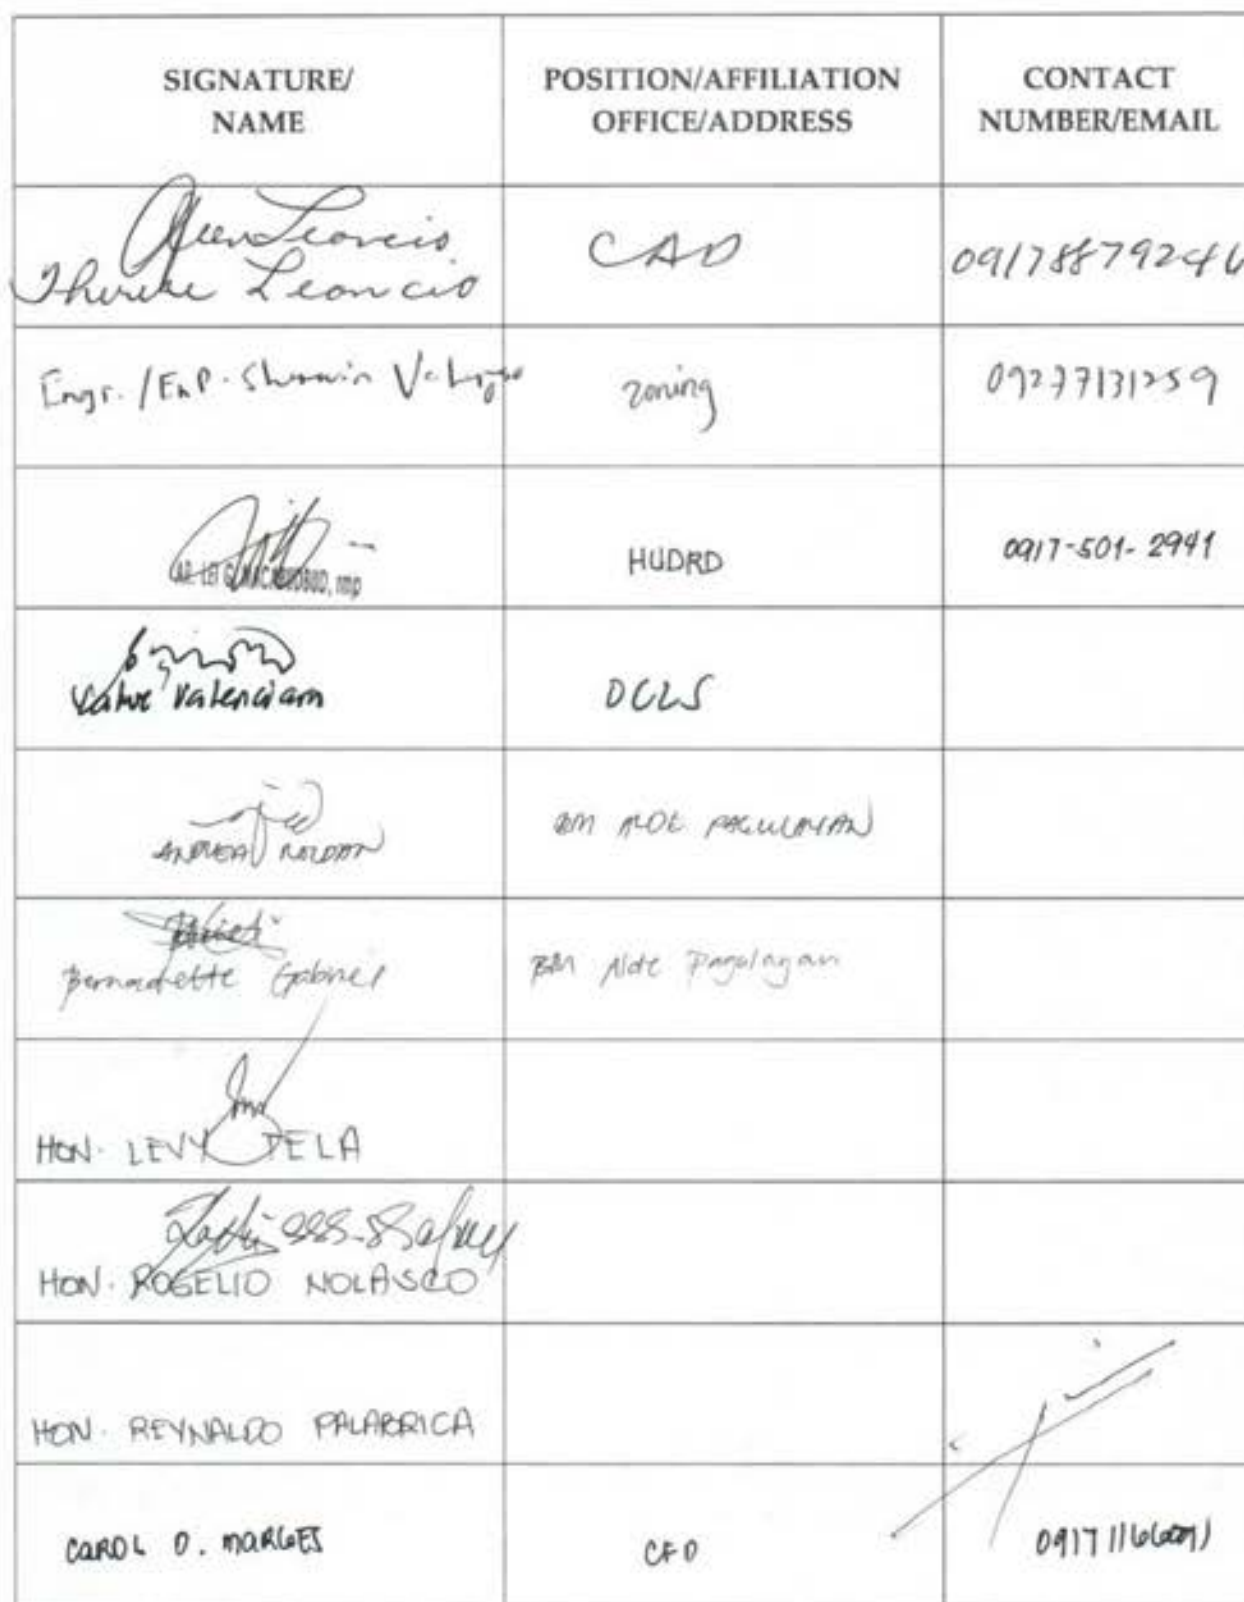 SIGNATURE/
NAME
POSITION/AFFILIATION
OFFICE/ADDRESS
CONTACT
NUMBER/EMAIL
Therese Leoncio
CAD
Engr. / EnP. Sherwin
zoning
09277131259
HUDRD
0917-501-2941
Valenciam
DCLS
ANDREA ROLDAN
BM ALDE PAGULAYAN
Bernadette Gabriel
BM Alde Pagulayan
HON. LEVY TELA
HON. ROGELIO NOLASCO
HON. REYNALDO PALABRICA
CAROL D.
CFD